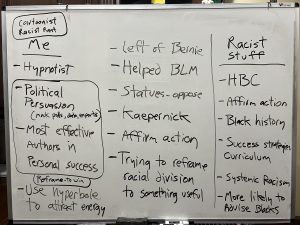 Cartoonist
Racist Rant
Me
- Hypnotist
- Political
Persuasion
- Most effective
Authors in
Personal success
Reframe to win
- Use hyperbole
to attract energy
- Left of Bernie
- Helped BLM
- Statues - oppose
- Kaepernick
- Affirm action
- Trying to reframe
racial division
to something useful
Racist
Stuff
- HBC
- Affirm action
- Black history
- Success strategies
Curriculum
- Systemic Racism
- More likely to
Advise Blacks